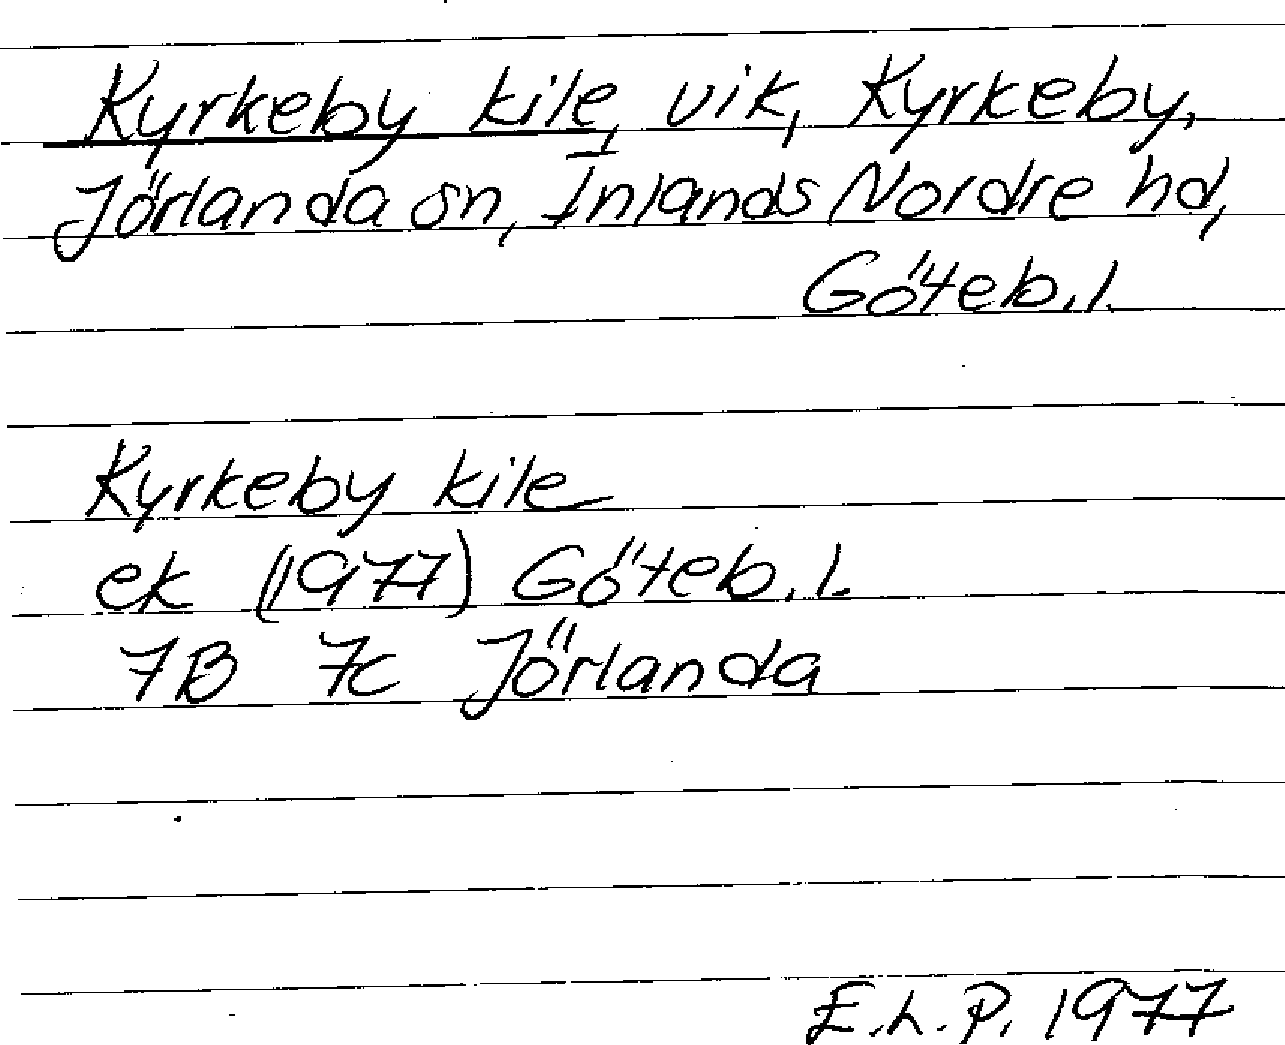 Kyrkeby kile, vik, Kyrkeby,
Jörlanda sn, Inlands Nordre hd,
Göteb.l.
Kyrkeby kile
ek (1977) Göteb.l.
7B 7c Jörlanda
E.L.P. 1977